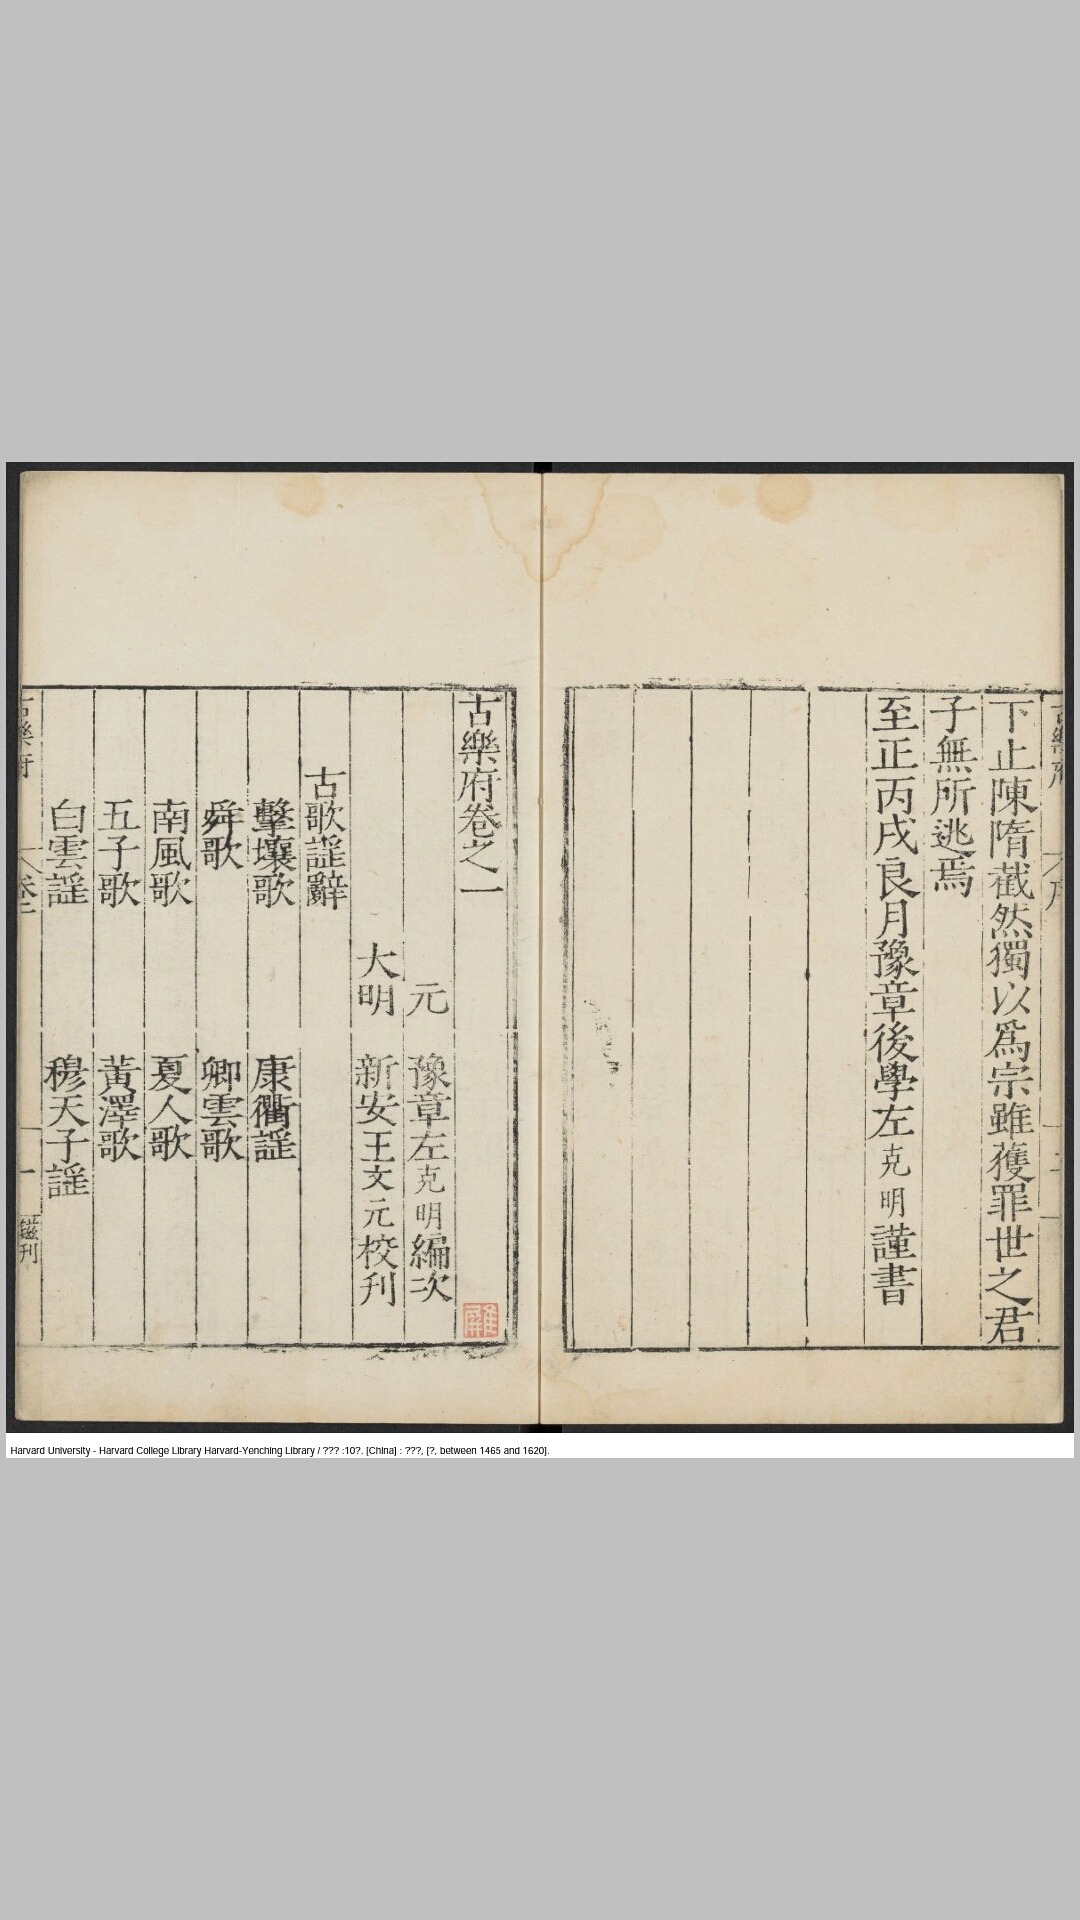 下止陳隋截然獨以爲宗雖獲罪世之君
子無所逃焉
至正丙戌良月豫章後學左克明謹書
古樂府卷之一
元 豫章左克明編次
大明 新安王文元校刊
古歌謡辭
擊壤歌 康衢謡
舜歌 卿雲歌
南風歌 夏人歌
五子歌 黃澤歌
白雲謡 穆天子謡
古樂府 卷一 一
Harvard University - Harvard College Library Harvard-Yenching Library / ??? :10?. [China] : ???, [?, between 1465 and 1620].